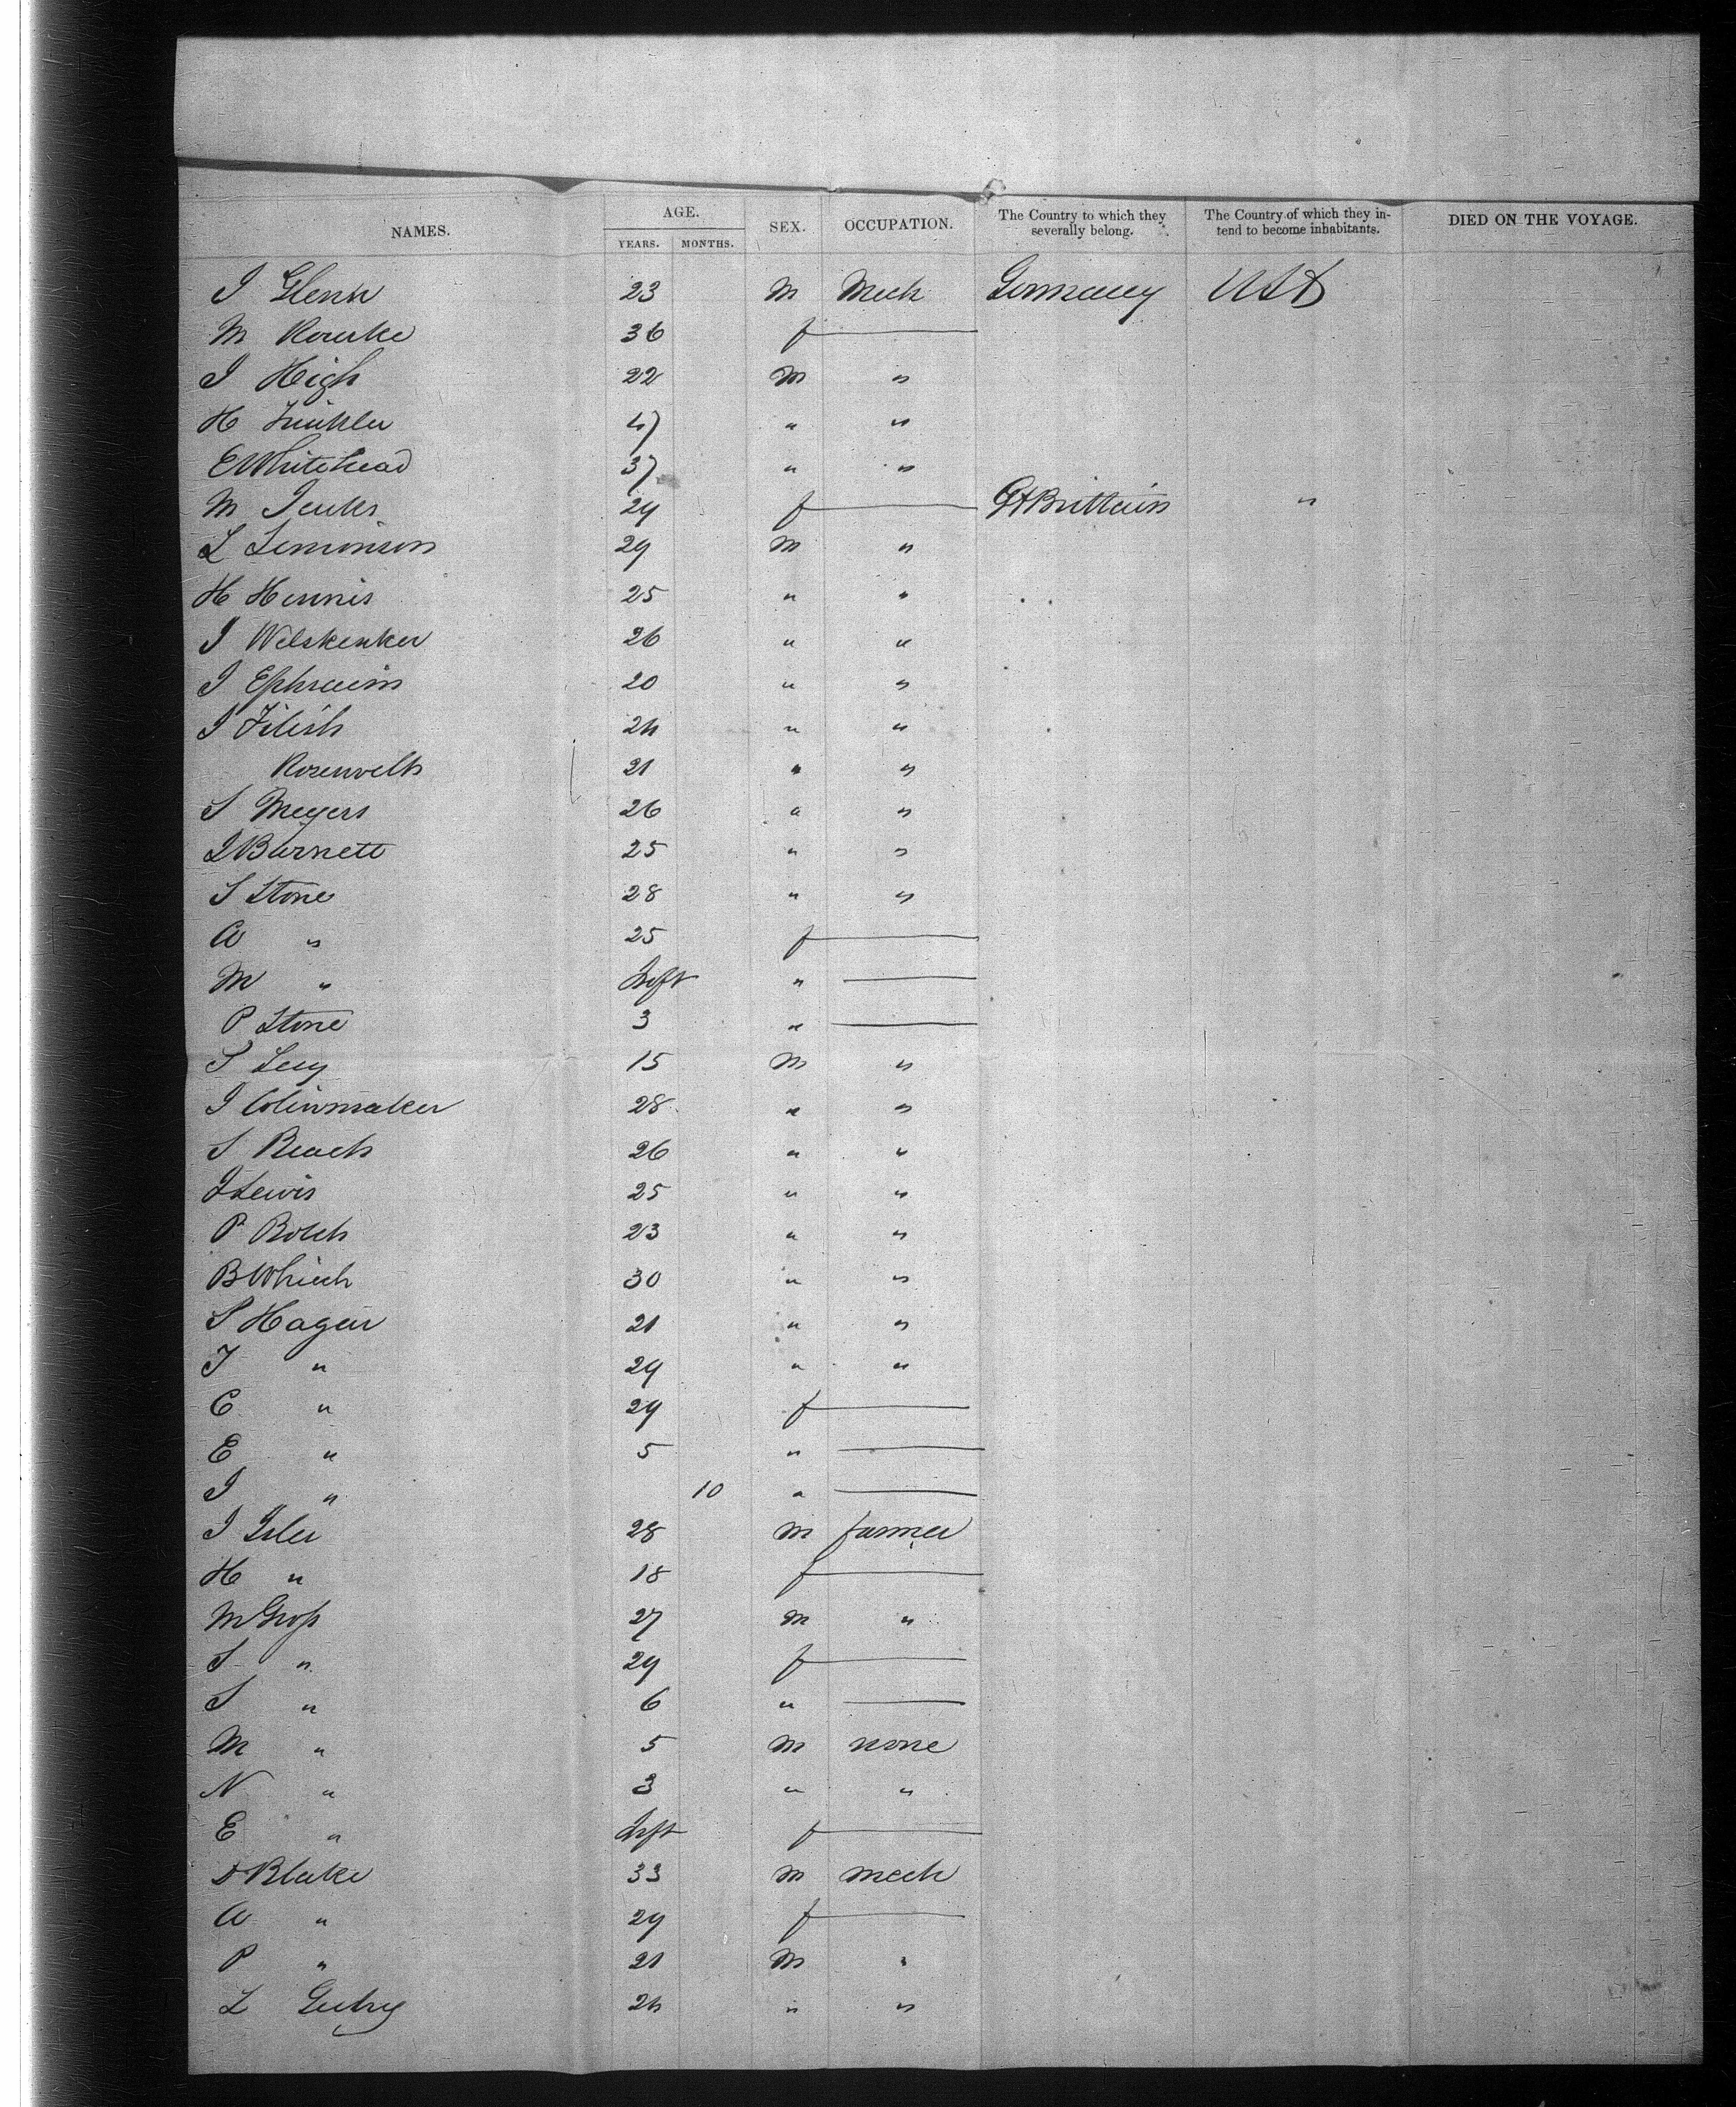 NAMES. AGE. SEX. OCCUPATION. The Country to which they severally belong. The Country of which they intend to become inhabitants. DIED ON THE VOYAGE.
YEARS. MONTHS.
J Glenn 23 M Mech Germany USA
M Rourke 36 f
J High 22 M "
H 47 " "
E Whitehead 37 " "
M Jenks 29 f Gt Brittain "
L Simonson 29 M "
H Hennis 25 " "
J Welskenker 26 " "
J Ephraim 20 " "
J 24 " "
Rosenvelt 21 " "
S Meyers 26 " "
J Barnett 25 " "
S Stone 28 " "
A " 25 f
M " Inft "
P Stone 3 "
S Levy 15 M "
J 28 " "
S Beach 26 " "
J Lewis 25 " "
P 23 " "
B 30 " "
S Hagan 21 " "
J " 29 " "
C " 29 f
E " 5 "
J " 10 "
J Isler 28 M farmer
H " 18 f
M Gross 27 M "
S " 29 f
S " 6 "
M " 5 M none
N " 3 " "
E " Inft f
D Blake 33 M mech
A " 29 f
P " 21 M "
L 24 " "